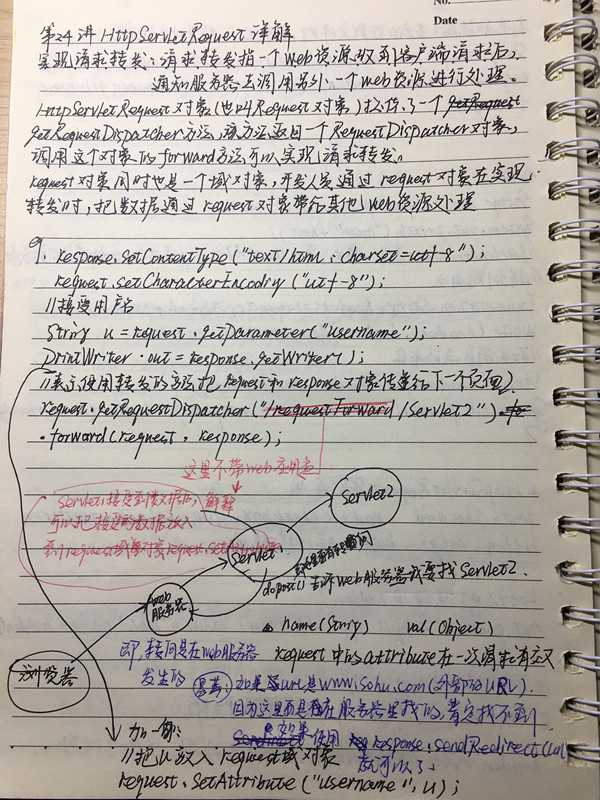 No.
Date
第24讲 HttpServletRequest 详解
实现请求转发：请求转发指一个web资源收到客户端请求后，
通知服务器去调用另外一个web资源进行处理。
HttpServletRequest对象(也叫Request对象)提供了一个 getRequest
getRequestDispatcher方法，该方法返回一个RequestDispatcher对象，
调用这个对象的forward方法可以实现请求转发。
request对象同时也是一个域对象，开发人员通过request对象在实现
转发时，把数据通过request对象带给其他web资源处理
eg. response.setContentType("text/html; charset=utf-8");
request.setCharacterEncoding("utf-8");
//接受用户名
String u = request.getParameter("username");
PrintWriter out = response.getWriter();
//表示使用转发的方法把request和response对象传递给下一个页面
request.getRequestDispatcher("/requestForward/Servlet2")
.forward(request, response);
这里不带web应用名
Servlet1接受到数据后，
可以把接受的数据放入
到request域对象request.setAttribute
解释
Servlet2
Servlet1
dopost() 告诉web服务器我要找Servlet2.
web
服务器
浏览器
name(String) val(Object)
即转向是在web服务器
发生的
request中的attribute在一次请求有效
如果url是www.sohu.com(外部的URL).
因为这里面是在服务器里找的，肯定找不到
如果使用 response.sendRedirect(url
就可以了
加一部:
//把u放入request域对象
request.setAttribute("username", u);